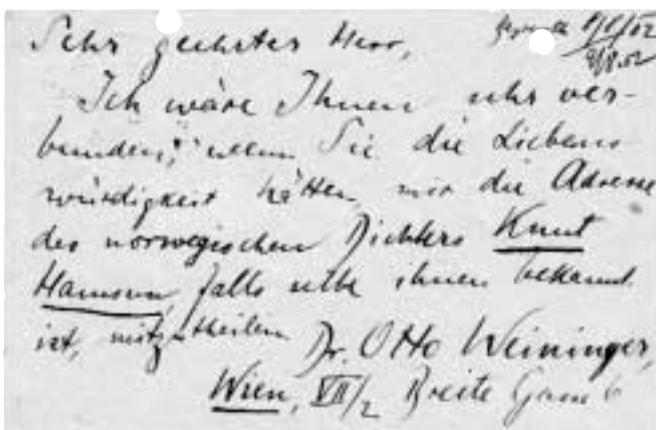 Sehr geehrter Herr,
Ich wäre Ihnen sehr ver-
bunden, wenn Sie die Liebens
würdigkeit hätten mir die Adresse
des norwegischen Dichters Knut
Hamsun, falls selbe ihnen bekannt
ist, mitzutheilen
Dr. Otto Weininger,
Wien, VII/2 Breite Gasse 6